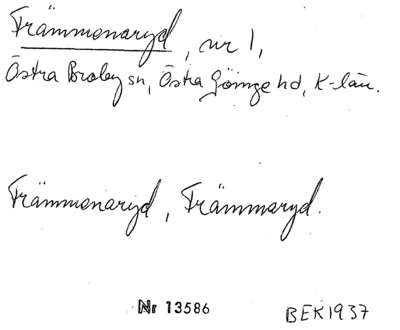 Främmenaryd, nr 1,
Östra Broby sn, Östra Göinge hd, K-län.
Främmenaryd, Främmaryd.
Nr 13586
BEK1937